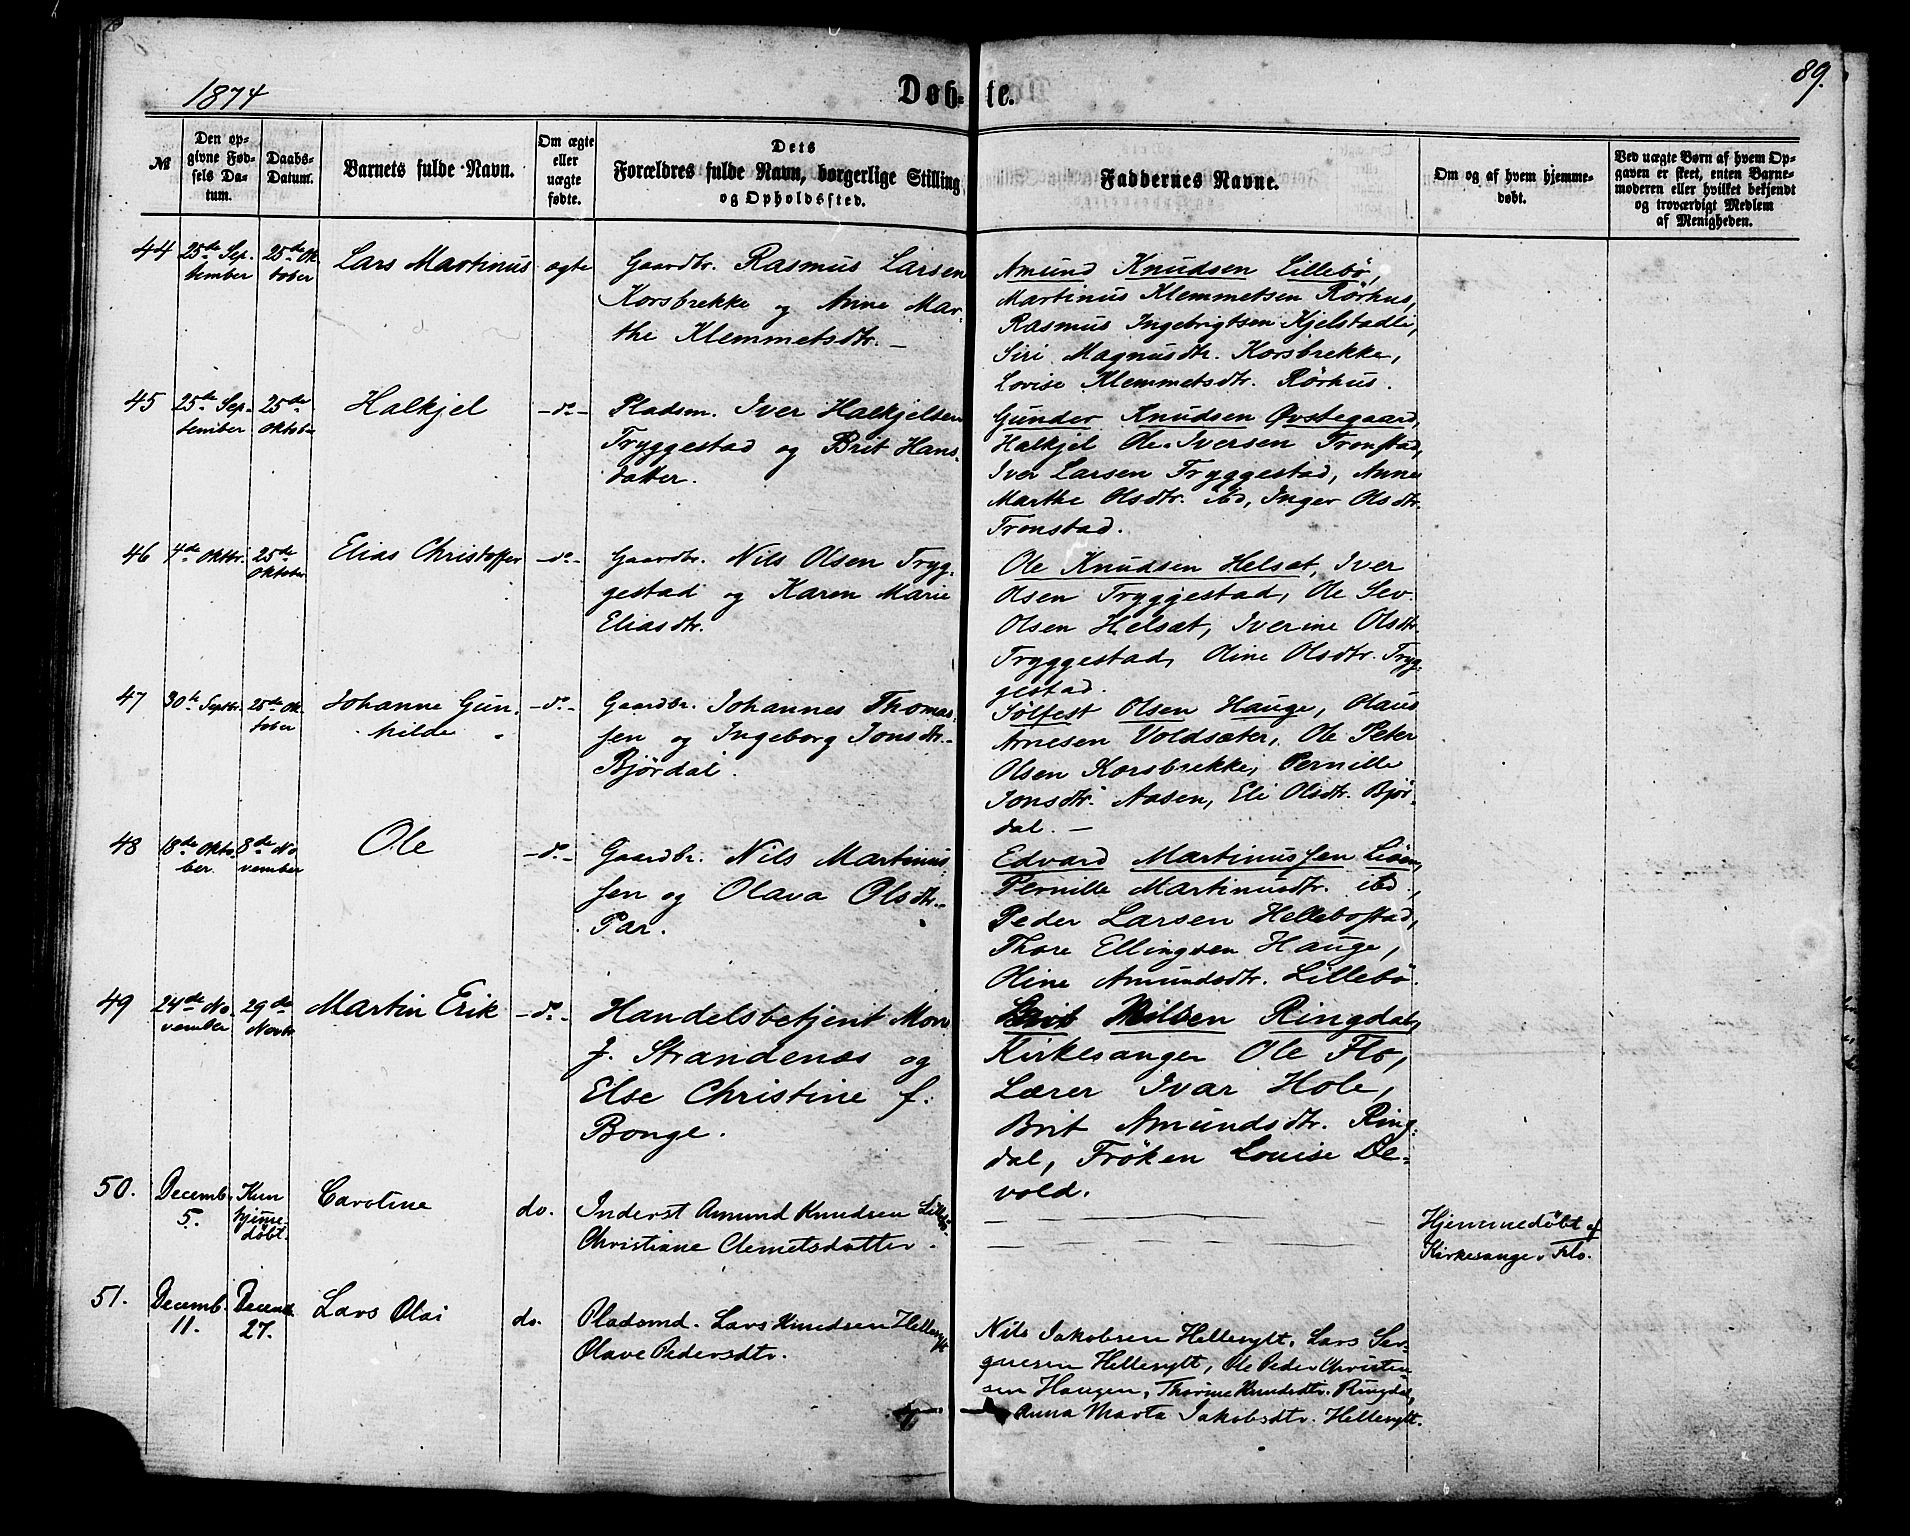 1874
Døb-te.
89.
№
Den opgivne Fødsels Datum.
Daabs-Datum.
Barnets fulde Navn.
Om ægte eller uægte fødte.
Dets Forældres fulde Navn, borgerlige Stilling og Opholdssted.
Faddernes Navne.
Om og af hvem hjemmedøbt.
Ved uægte Børn af hvem Opgaven er skeet, enten Barnemoderen eller hvilket bekjendt og troværdigt Medlem af Menigheden.
44 25de September 25de Oktober Lars Martinus ægte
Gaardbr. Rasmus Larsen
Korsbrekke og Anne Mar-
the Klemmetsdtr. –
Amund Knudsen Lillebö,
Martinus Klemmetsen Rörhus,
Rasmus Ingebrigtsen Kjelstadli,
Siri Magnusdtr. Korsbrekke,
Lovise Klemmetsdtr. Rörhus.
45 25de September 25de Oktober Halkjel –do–
Pladsm. Iver Halkjelsen
Tryggestad og Brit Hans-
datter.
Gunder Knudsen Øvstegaard,
Halkjel Ole-Iversen Tronstad,
Iver Larsen Tryggestad, Anne
Marthe Olsdtr. ibd, Inger Olsdtr.
Tronstad.
46 4de Oktbr. 25de Oktober Elias Christoffer –do–
Gaardbr. Nils Olsen Tryg-
gestad og Karen Marie
Eliasdtr.
Ole Knudsen Helsæt, Iver
Olsen Tryggestad, Ole Sev.
Olsen Helsæt, Iverine Olsdtr.
Tryggestad, Oline Olsdtr. Tryg-
gestad.
47 30te Septbr. 25de Oktober Johanne Gun-
hilde –do–
Gaardbr. Johannes Thomas-
sen og Ingeborg Jonsdtr.
Bjørdal.
Sölfest Olsen Hauge, Olaus
Arnesen Voldsæter, Ole Peter
Olsen Korsbrekke, Pernille
Jonsdtr. Aasen, Eli Olsdtr. Björ-
dal. –
48 18de Oktober 8de November Ole –do–
Gaardbr. Nils Martinus-
sen og Olava Olsdtr.
Par.
Edvard Martinussen Liöen,
Pernille Martinusdtr. ibd.,
Peder Larsen Hellebostad,
Thore Ellingsen Hauge,
Oline Amundsdtr. Lillebö.
49 24de November 29de Novbr Martin Erik –do–
Handelsbetjent Mons
J. Strandenæs og
Else Christine f.
Bonge.
Nilsen Ringdal,
Kirkesanger Ole Flo,
Lærer Ivar Hole,
Brit Amundsdtr. Ring-
dal, Fröken Louise De-
vold.
50. Decemb. 5. Kun hjemme-döbt. Caroline do.
Inderst Amund Knudsen Lillebö.
Christiane Clemetsdatter.
Hjemmedöbt af
Kirkesanger Flo.
51. Decemb. 11. Decemb. 27. Lars Olai do.
Pladsmd. Lars Knudsen Hellesylt
Olave Pedersdtr.
Nils Jakobsen Hellesylt, Lars Ser-
guesen Hellesylt, Ole Peder Christen-
sen Haugen, Thorine Knudsdtr. Ringdal,
Anna Marta Jakobsdtr. Hellesylt.